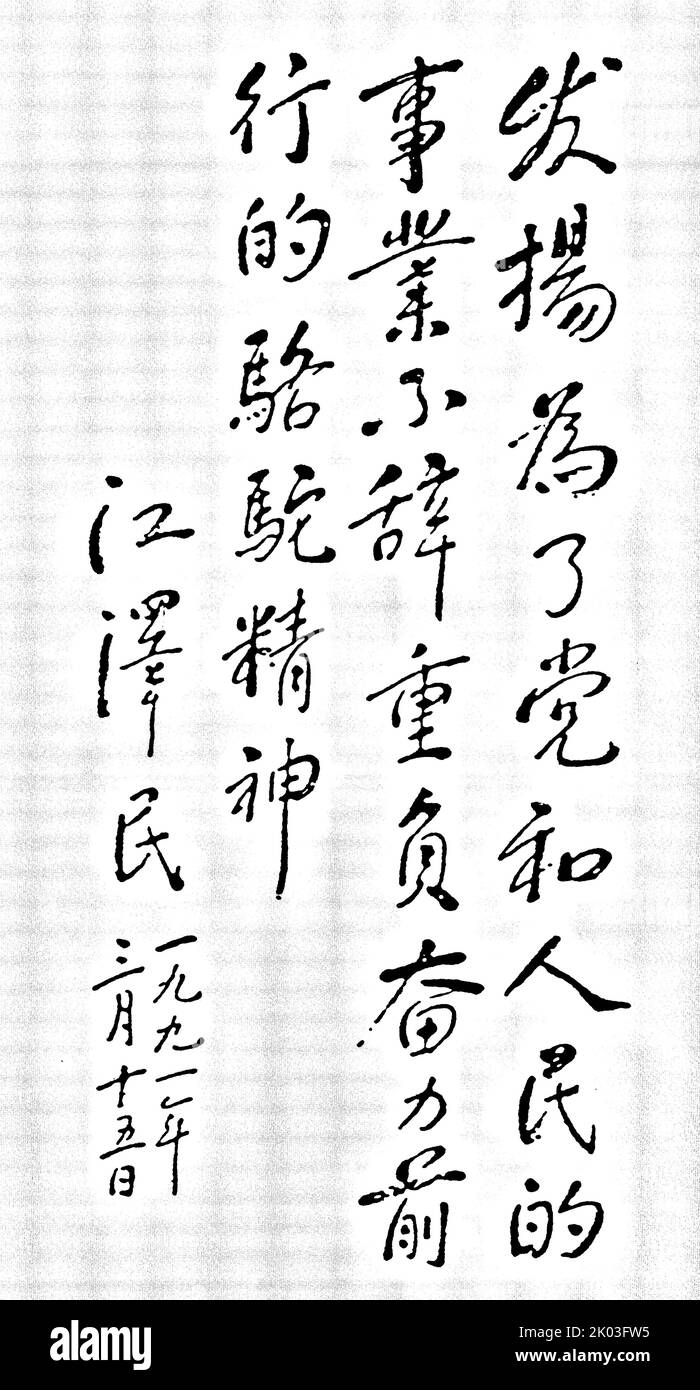 发揚為了党和人民的
事業不辞重负奋力前
行的駱駝精神
江澤民
一九九一年
三月十五日
alamy
Image ID: 2K03FW5
www.alamy.com